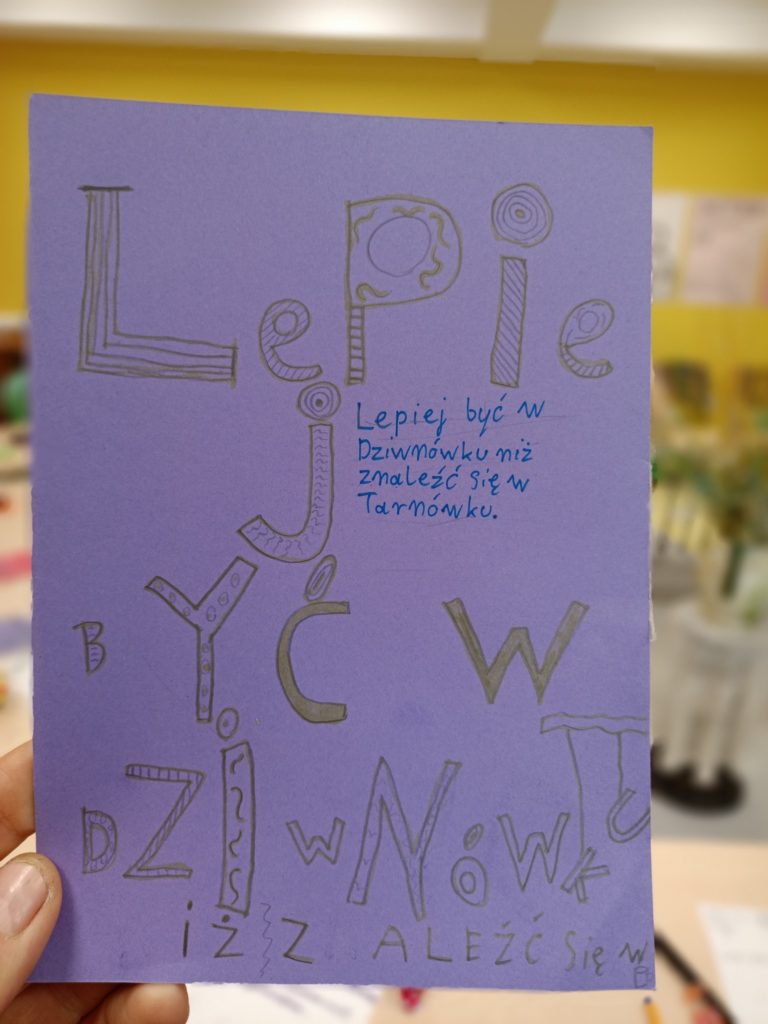 LePie
j
Lepiej być w
Dziwnówku niż
znaleźć się w
Tarnówku.
BYĆ W
DZiwNÓWkU
iż Z ALEŹĆ Się w